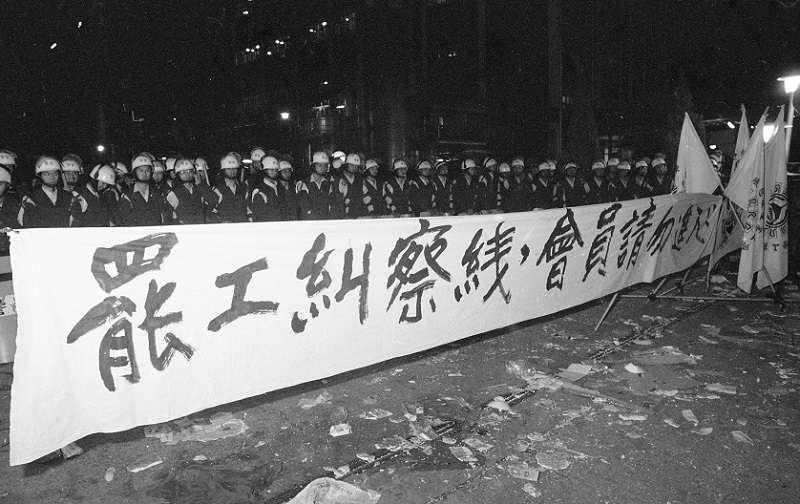 罷工糾察綫，會員請勿進入